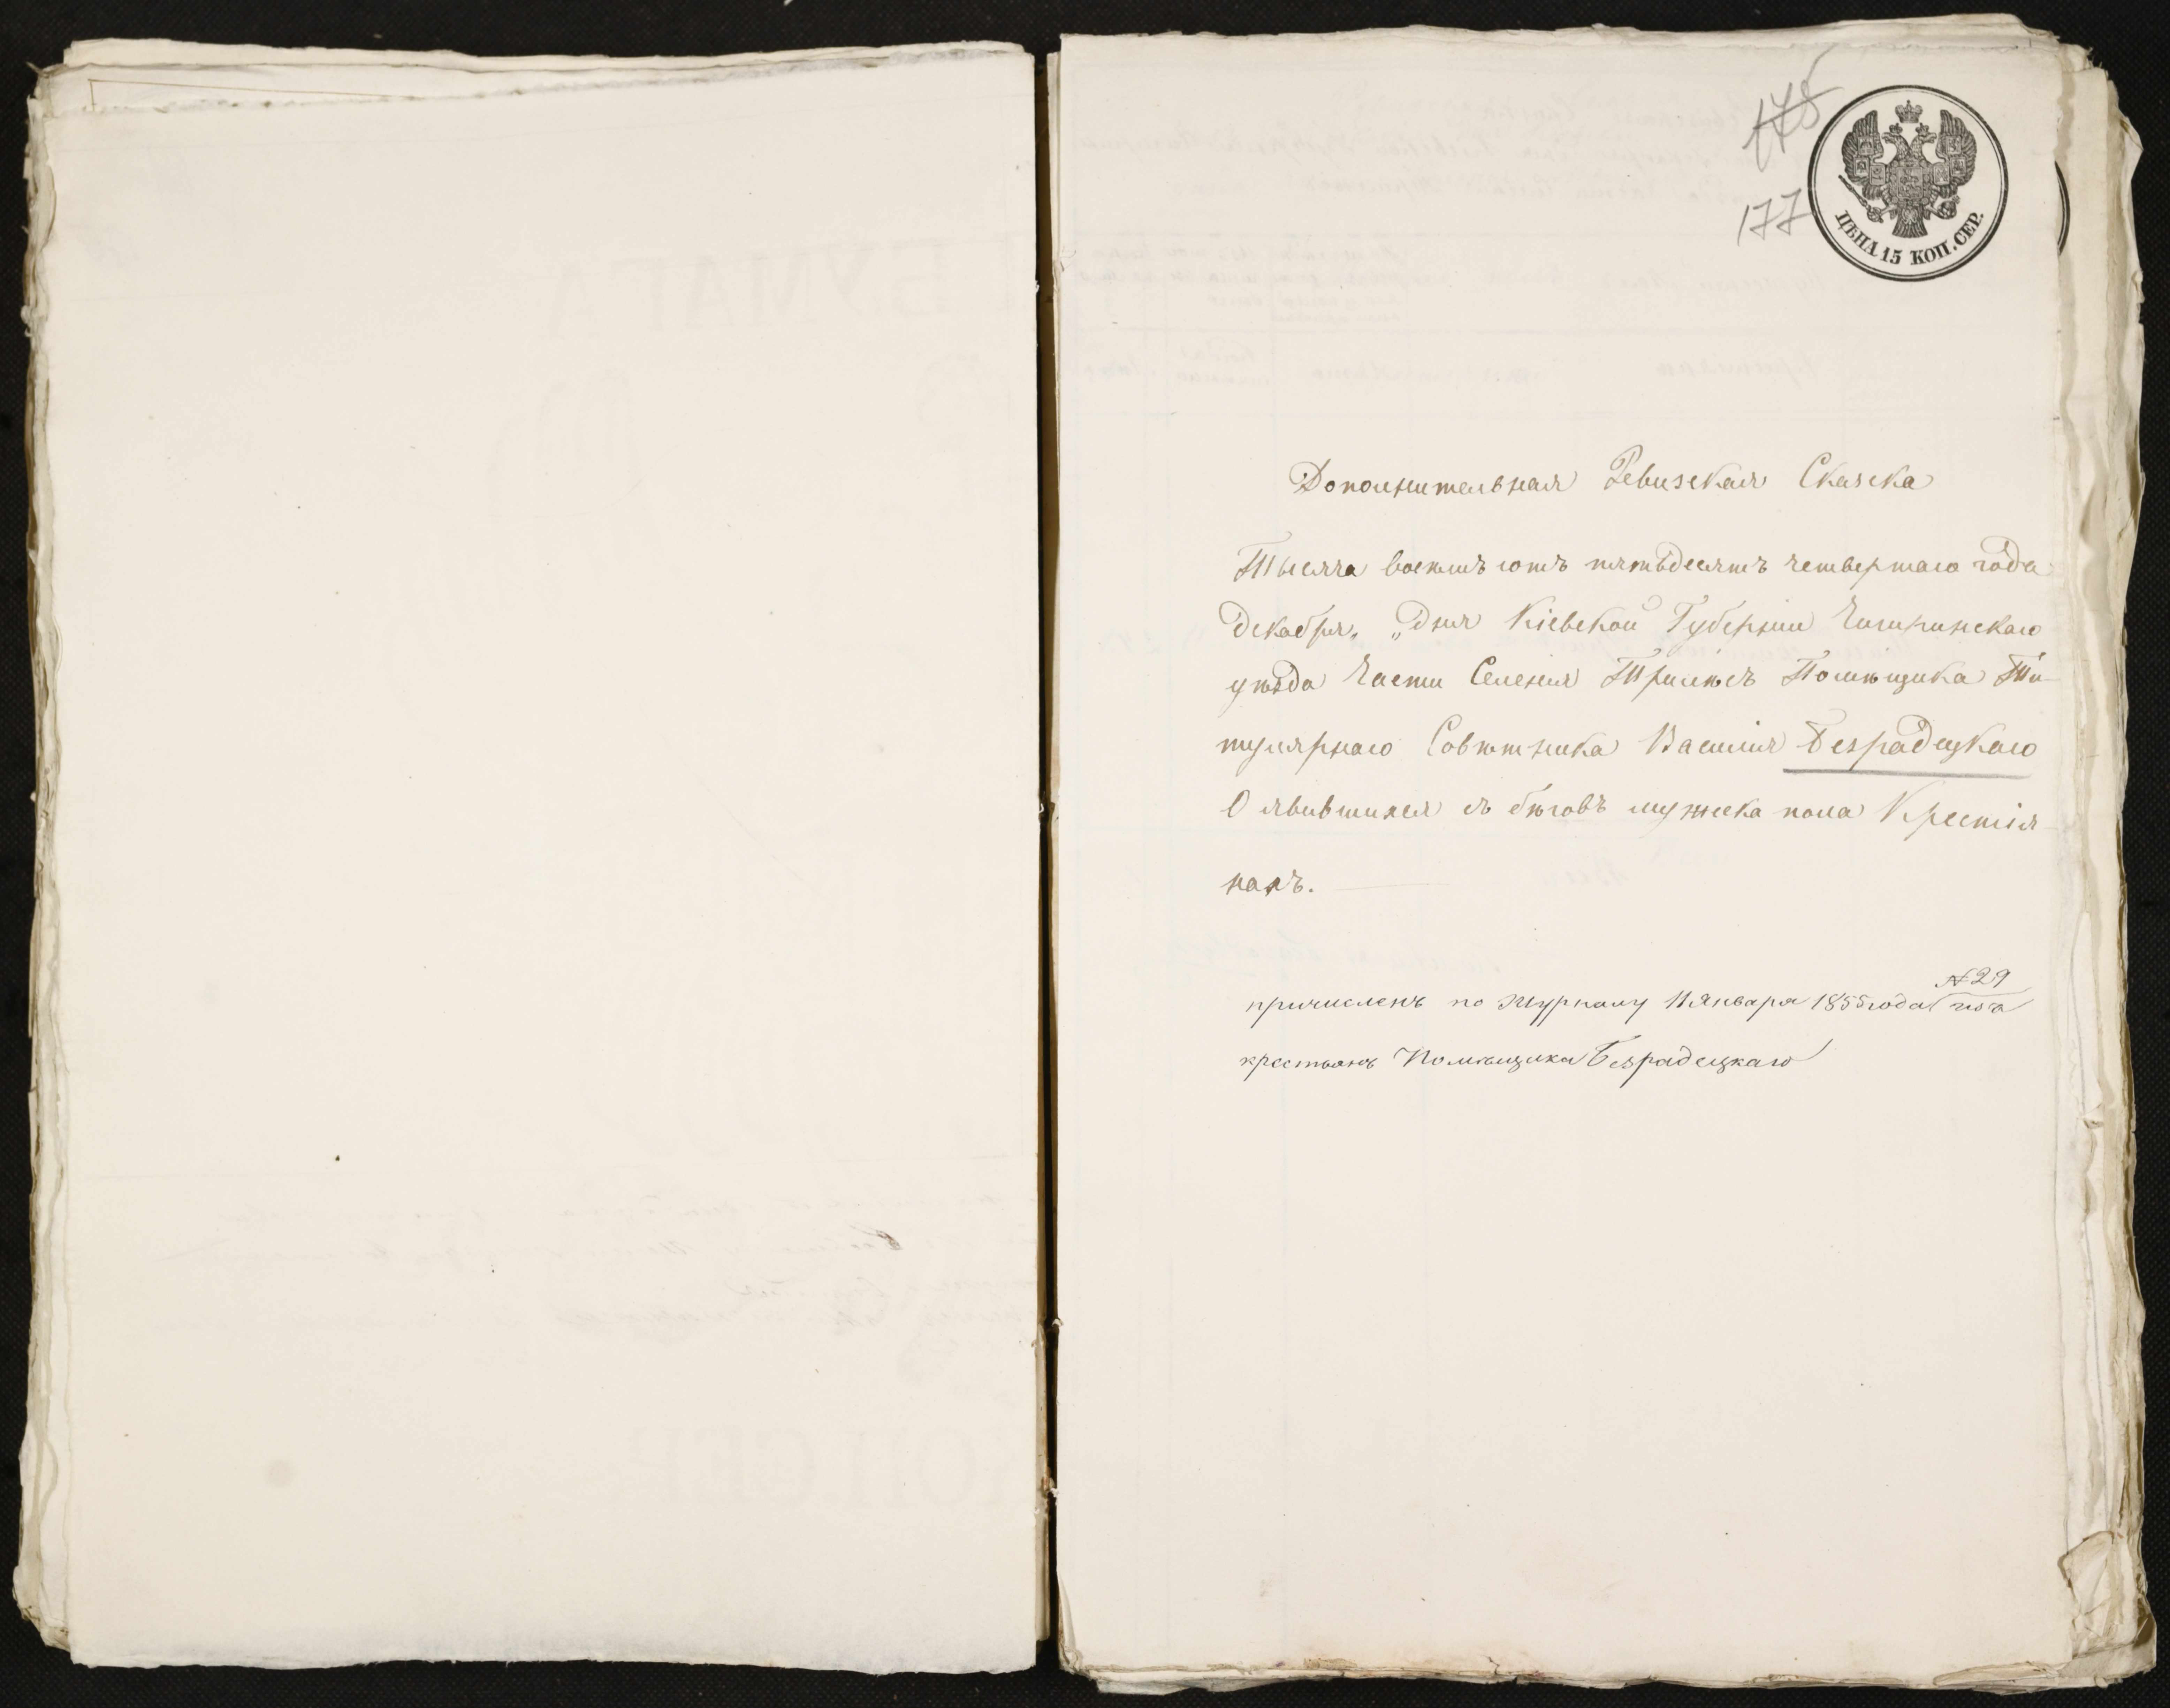 175
177
ЦѢНА 15 КОП. СЕР.
Дополнительная Ревизская Сказка
Тысяча восемь сотъ пятьдесятъ четвертаго года
Декабря „ „ дня Кіевской Губерніи Чигиринскаго
уезда Части Селенія Трилѣсъ Помѣщика Ти-
тулярнаго Совѣтника Василія Безрадецкаго
О явившихся съ бѣговъ мужеска пола Крестія-
нахъ.
№ 29
причисленъ по журналу 11 Января 1855 года
крестьянъ Помѣщика Безрадецкаго